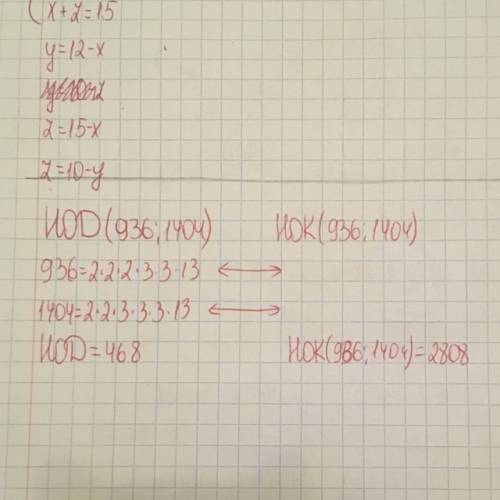 x+z=15
y=12-x
z=15-x
z=10-y
НОД(936;1404) НОК(936;1404)
936=2·2·2·3·3·13 ⟷
1404=2·2·3·3·3·13 ⟷
НОД=468 НОК(936;1404)=2808